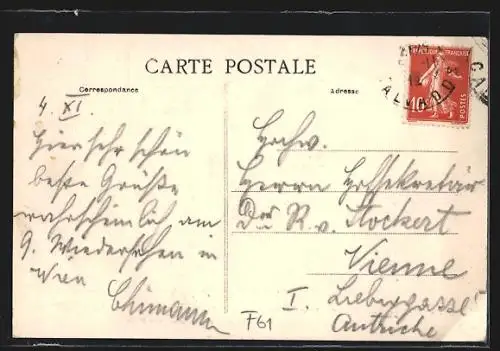 CARTE POSTALE
Correspondance
Adresse
RÉPUBLIQUE FRANÇAISE
10
POSTES
4. XI.
Hier sehr schön
beste Grüße
wahrscheinlich am
9. Wiedersehen in
Wien
Hochw.
Herrn Hofsekretär
Dr. R. v. Stockert
Vienne
I. Liebiggasse 5
Autriche
F61